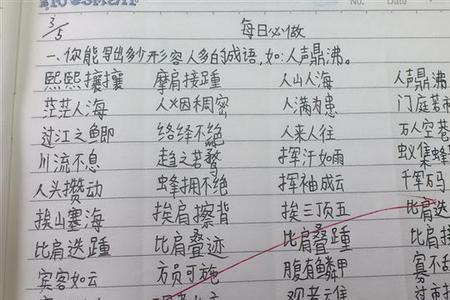 3/5
No.
每日必做
一、你能写出多少形容人多的成语,如:人声鼎沸。
熙熙攘攘 摩肩接踵 人山人海 人声鼎沸
茫茫人海 人烟稠密 人满为患 门庭若市
过江之鲫 络绎不绝 人来人往 万人空巷
川流不息 趋之若鹜 挥汗如雨 蚁集蜂
人头攒动 蜂拥不绝 挥袖成云 千军万马
挨山塞海 挨肩擦背 挨三顶五 比肩迭
比肩迭踵 比肩叠迹 比肩叠踵 比肩接
宾客如云 方员可施 腹有鳞甲 寡不
观者云集